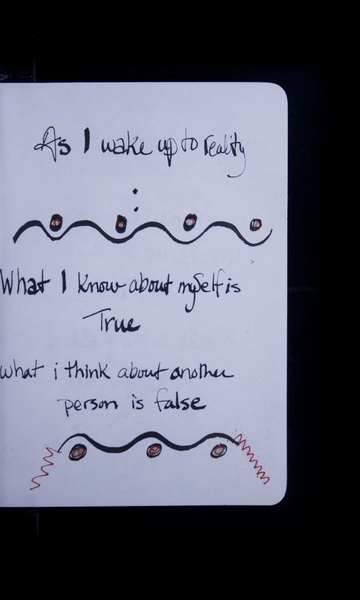 As I wake up to reality
:
What I know about myself is
True
what i think about another
person is false